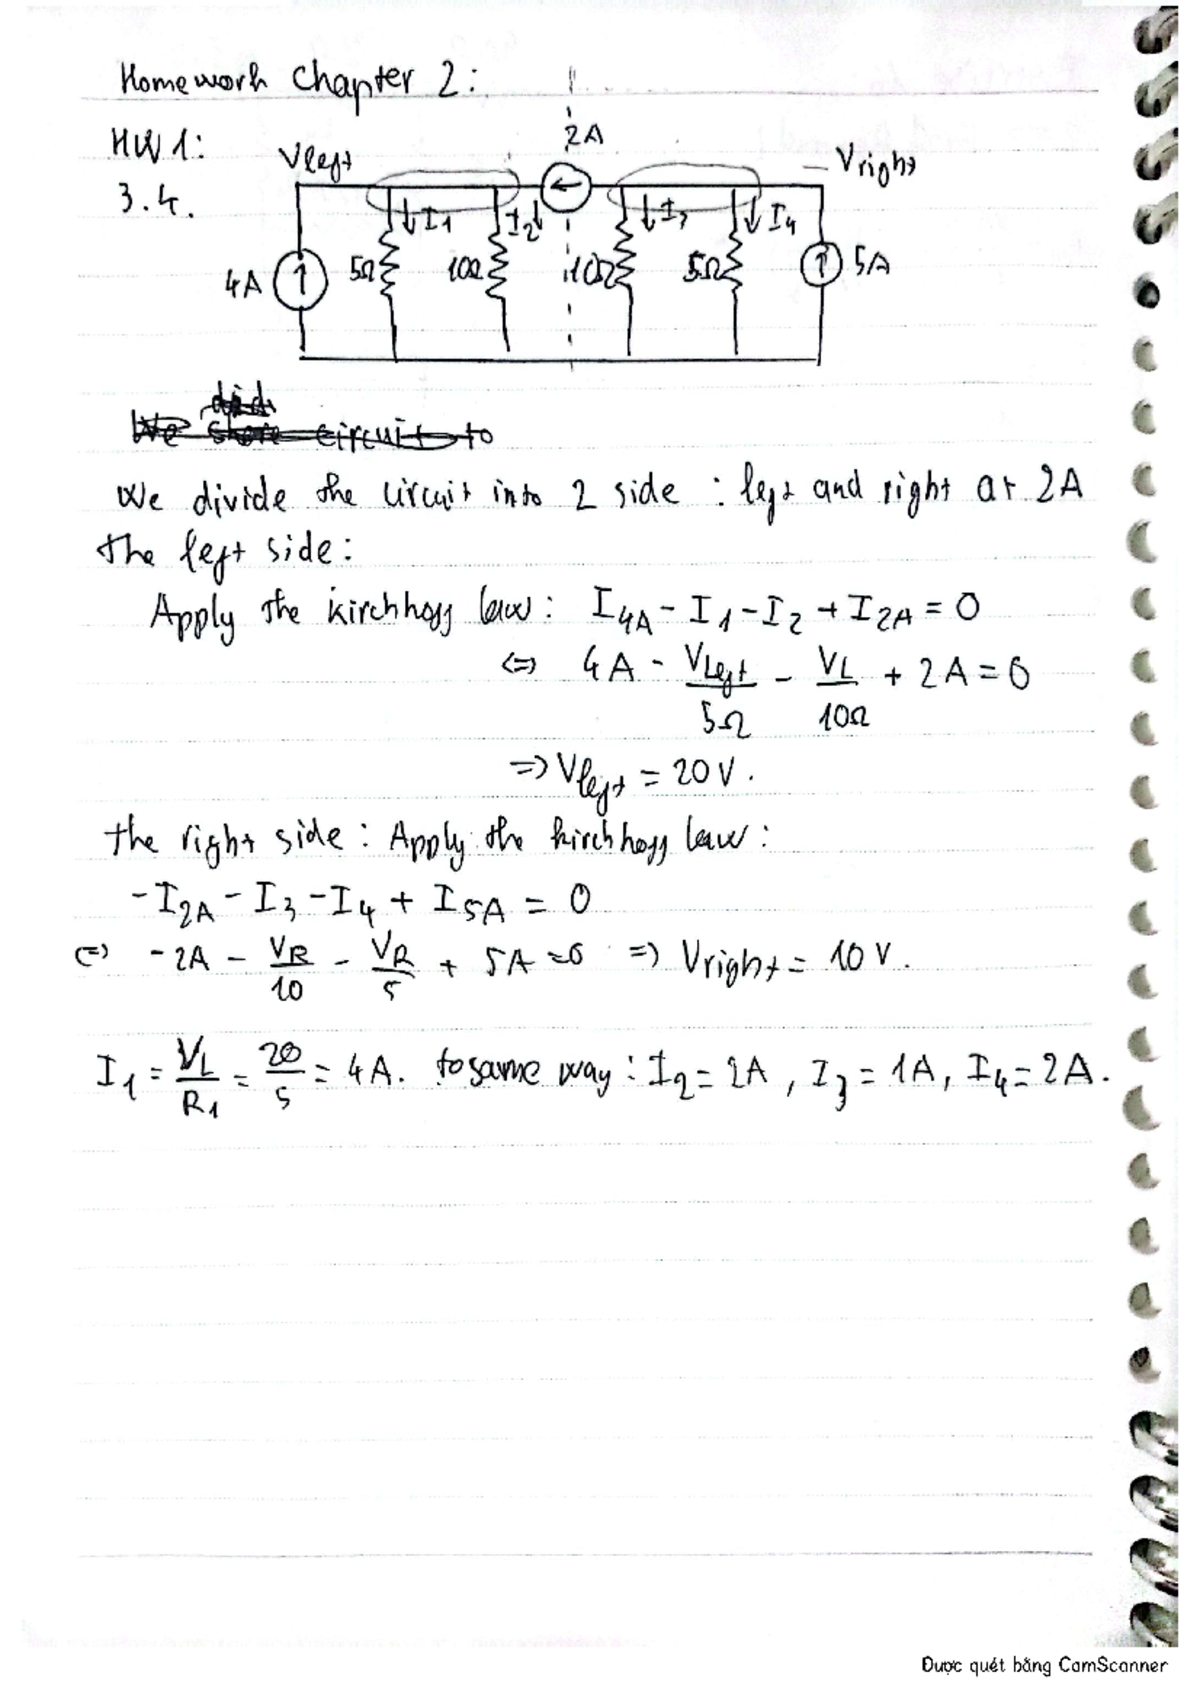 Homework chapter 2:
HW1:
3.4.
Vleft
2A
Vright
I1
I2
I3
I4
4A
5Ω
10Ω
10Ω
5Ω
5A
We divide the circuit into 2 side : left and right at 2A
the left side:
Apply the kirchhoff law: I4A - I1 - I2 + I2A = 0
<=> 4A - Vleft/5Ω - VL/10Ω + 2A = 0
=> Vleft = 20V.
the right side: Apply the kirchhoff law:
-I2A - I3 - I4 + I5A = 0
<=> -2A - VR/10 - VR/5 + 5A = 0 => Vright = 10V.
I1 = VL/R1 = 20/5 = 4A. to same way: I2 = 2A, I3 = 1A, I4 = 2A.
Được quét bằng CamScanner